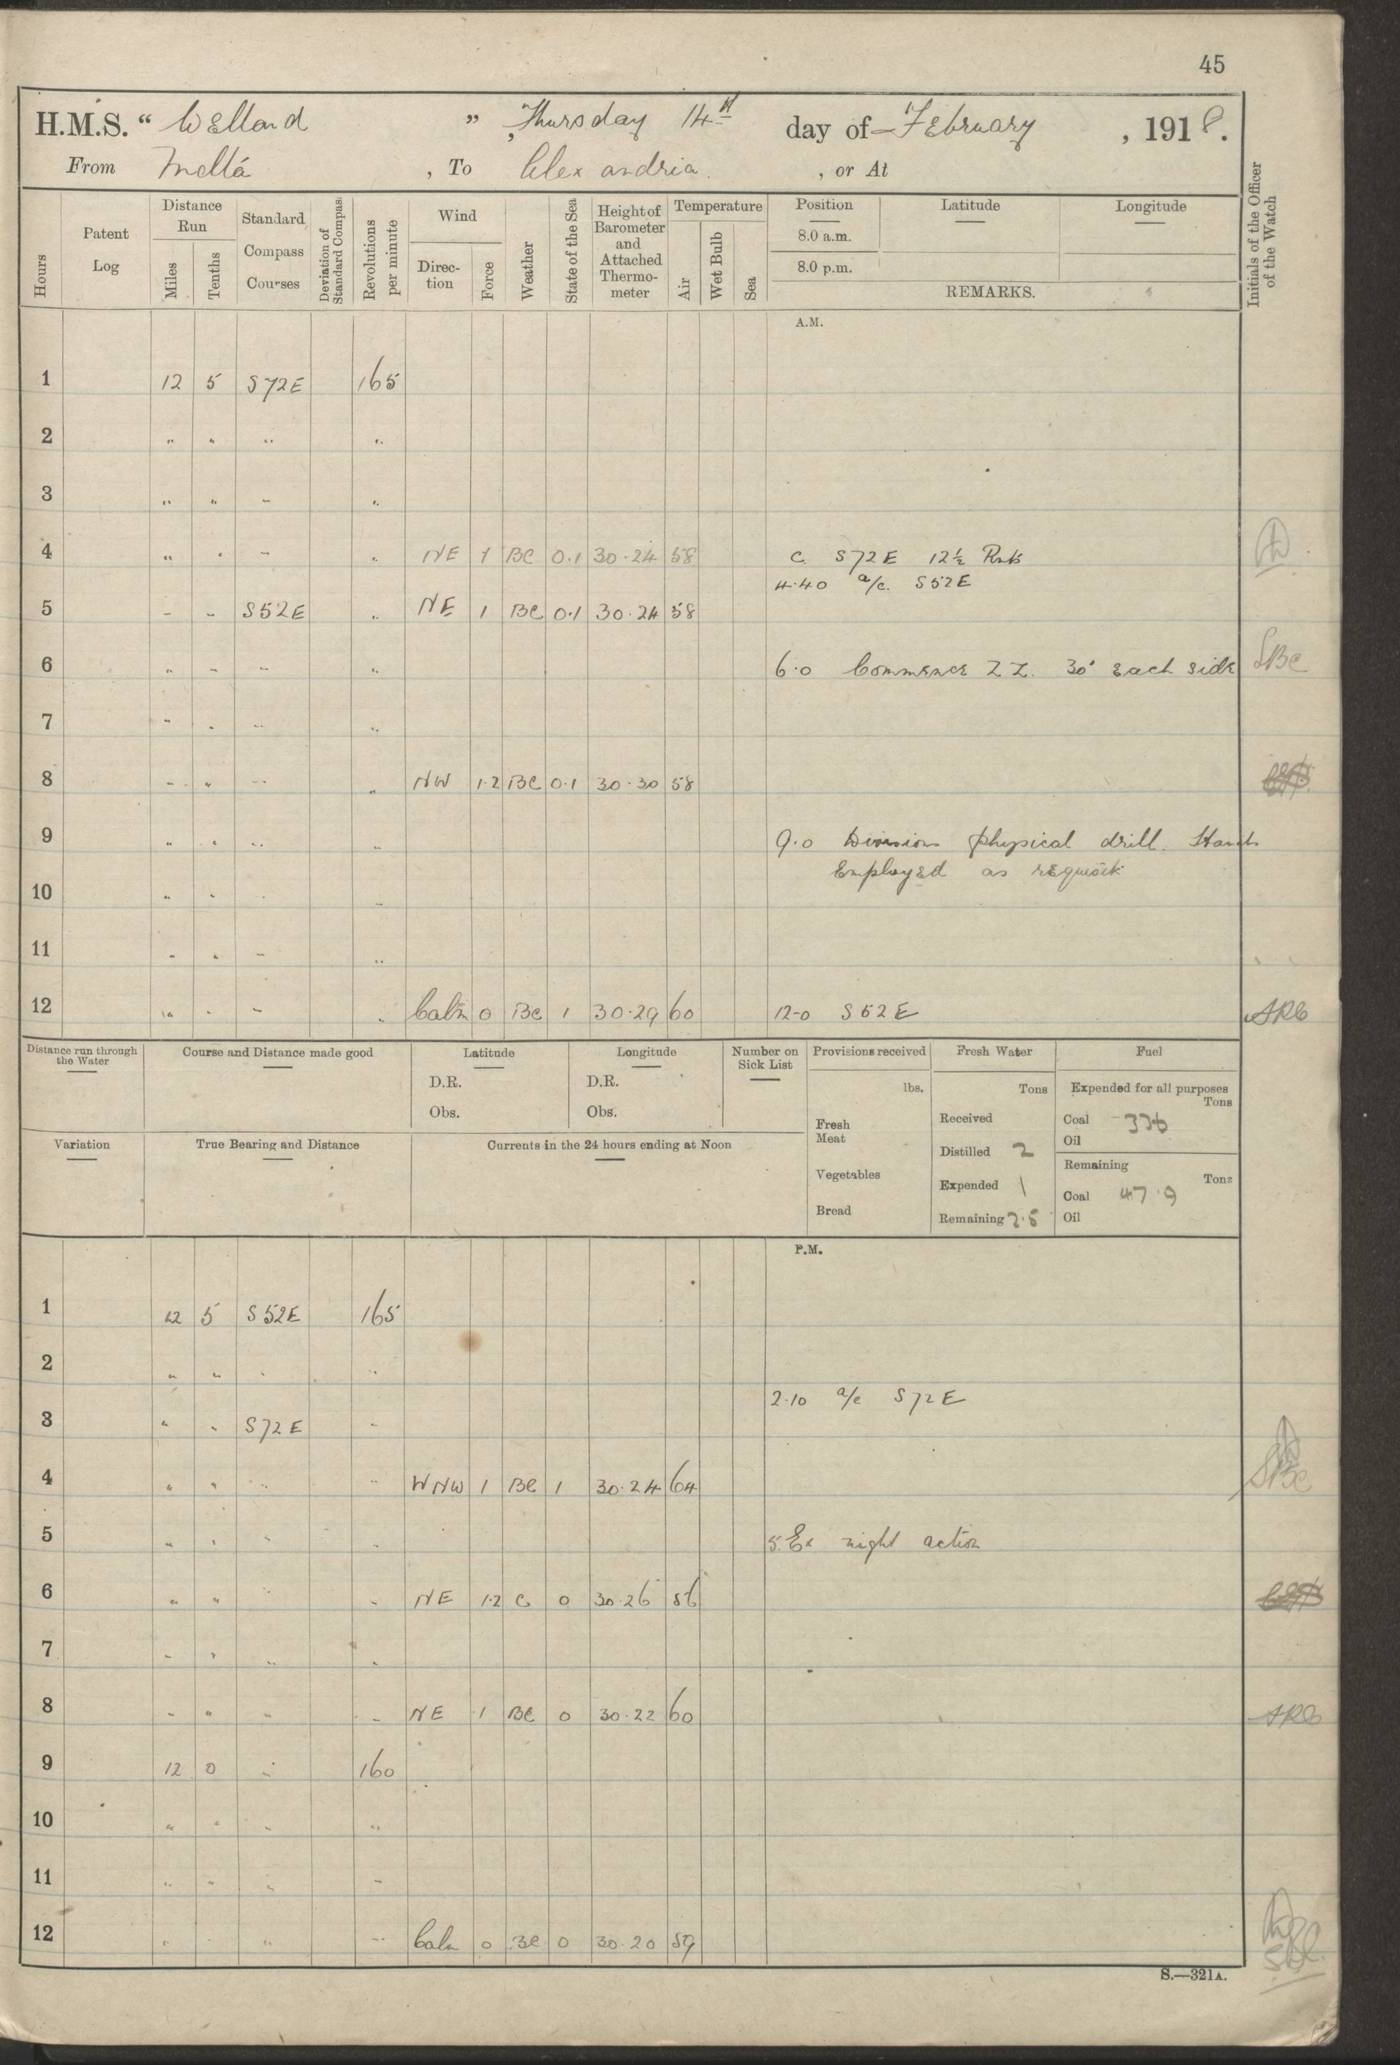 45
H.M.S. " Welland " Thursday 14th day of February , 1918.
From Malta , To Alexandria. , or At
Hours
Patent Log
Distance Run
Miles
Tenths
Standard Compass Courses
Deviation of Standard Compass
Revolutions per minute
Wind
Direction
Force
Weather
State of the Sea
Height of Barometer and Attached Thermometer
Temperature
Air
Wet Bulb
Sea
Position
8.0 a.m.
8.0 p.m.
Latitude
Longitude
REMARKS.
Initials of the Officer of the Watch
A.M.
1 12 5 S72E 165
2 " " " "
3 " " " "
4 " " " " NE 1 BC 0.1 30.24 58 C. S72E 12½ Knts
4.40 a/c. S52E
5 " " S52E " NE 1 BC 0.1 30.24 58
6 " " " " 6.0 Commence ZZ. 30° each side SBC
7 " " " "
8 " " " " NW 1.2 BC 0.1 30.30 58
9 " " " " 9.0 Division physical drill. Hands
Employed as requisite
10 " " " "
11 " " " "
12 " " " " Calm 0 BC 1 30.29 60 12-0 S52E
Distance run through the Water
Course and Distance made good
Latitude
D.R.
Obs.
Longitude
D.R.
Obs.
Number on Sick List
Provisions received
lbs.
Fresh Meat
Vegetables
Bread
Fresh Water
Tons
Received
Distilled 2
Expended 1
Remaining
Fuel
Expended for all purposes
Tons
Coal
Oil
Remaining
Tons
Coal 47.9
Oil
Variation
True Bearing and Distance
Currents in the 24 hours ending at Noon
P.M.
1 12 5 S52E 165
2 " " " "
2.10 a/c S72E
3 " " S72E "
4 " " " " WNW 1 BC 1 30.24 64 SBC
5 " " " " 5. Ex night action
6 " " " " NE 1.2 C 0 30.26 56
7 " " " "
8 " " " " NE 1 BC 0 30.22 60
9 12 0 " 160
10 " " " "
11 " " " "
12 " " " " Calm 0 BC 0 30.20 59
S.—321A.